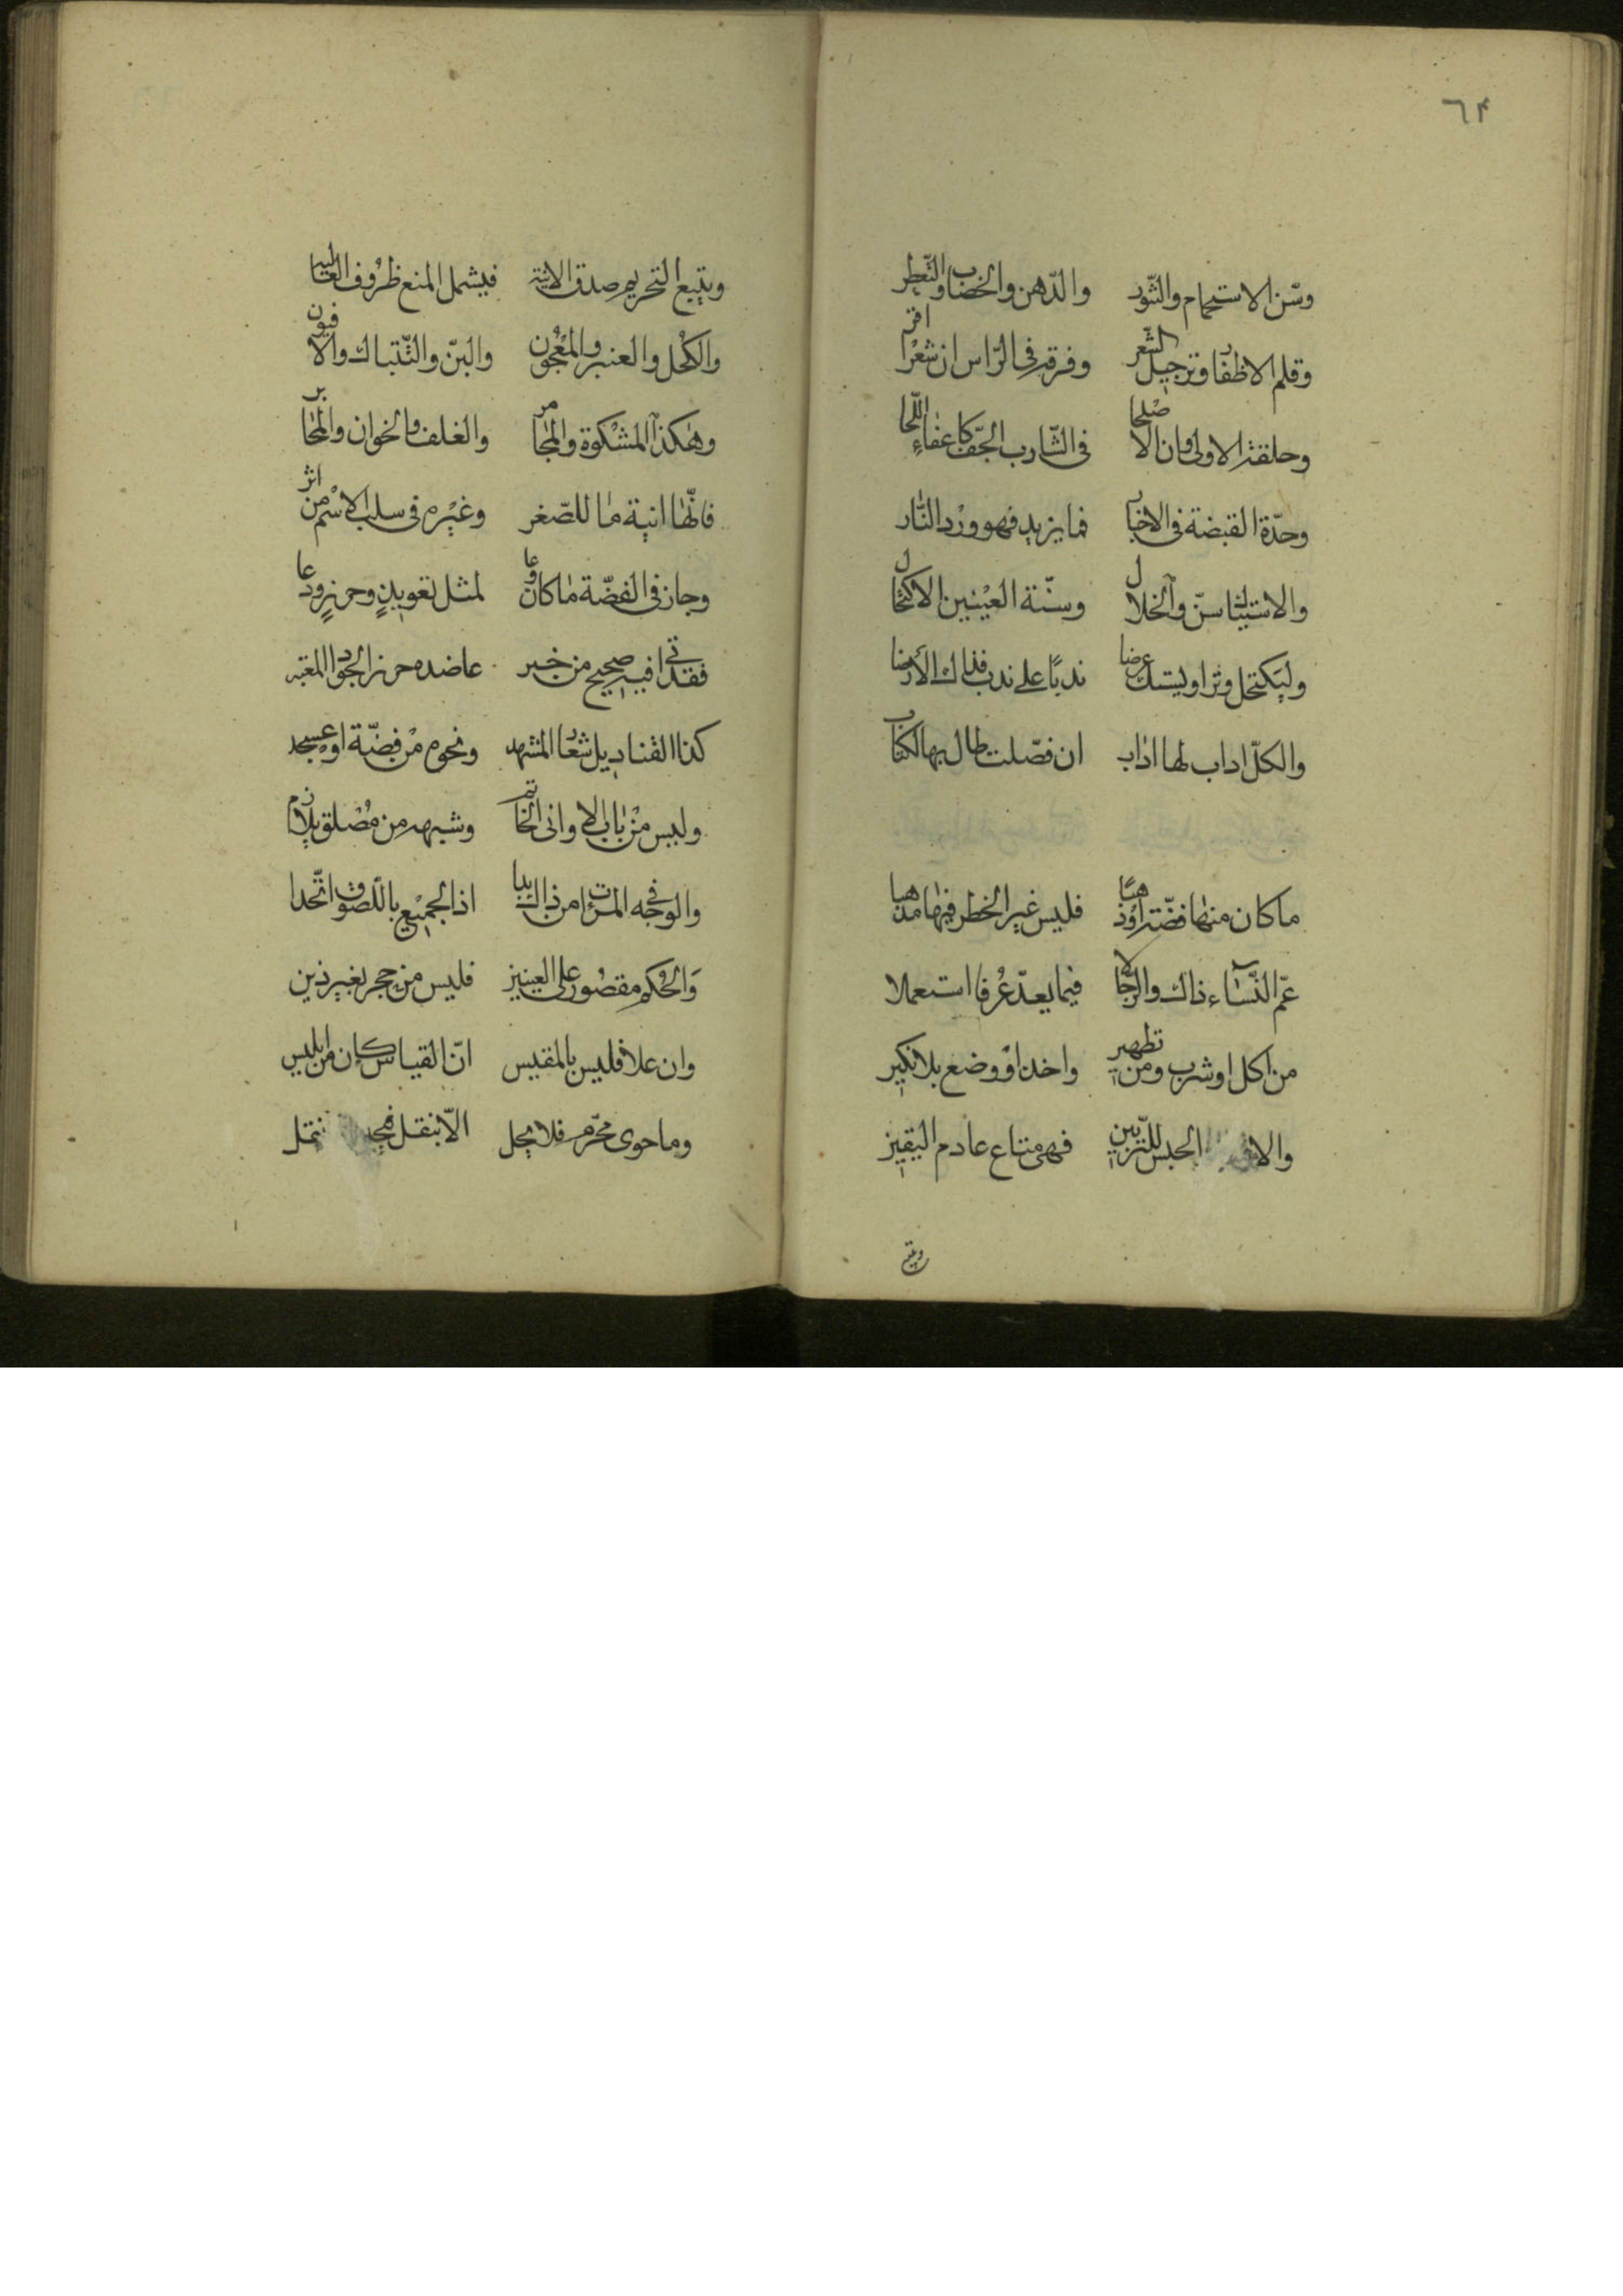 ٦٤
وسّن الاستحمام والتّنور والدّهن والخضاب والتّعطر
وقلم الاظفار وترجيل الشّعر وفرقه فى الرّاس ان شعرًا اقر
وحلقه الاولى وان الاصلحا فى الشّارب الجّف كاعفاء اللّحا
وحدّة القبضة فى الاخبار فما يزيد فهو ورد النّار
والاستياك سنّ والخلال وسنّة العينين الاكتحال
وليكتحل وترا وليستك عرضا ندبًا على ندب فذاك الأرضا
والكلّ اداب لها اداب ان فصّلت طال بها الكتاب
ما كان منها فضّة او ذهبًا فليس غير الخطر فيها مذهبا
عمّ النّساء ذاك والرّجالا فيما يعدّ عُرفا استعملا
من اكل او شرب ومن تطهير واخذ او وضع بلا نكير
والا الحبس للتزيين فهى متاع عادم اليقين
ويتبع
ويتبع التحريم صدق الانية فيشمل المنع ظروف الغالية
والكحل والعنبر والمعجون والبنّ والتّتباك والافيون
وهكذا المشكوة والمجامر والغلف والخوان والمحابر
فانّها انية ما للصّغر وغيره فى سلب الاسم من اثر
وجاز فى الفضّة ما كان وعا لمثل تعويذٍ وحرزٍ ودعا
فقد اتى فيه صحيح من خبر عاضده حرز الجواد المعتبر
كذا القناديل شعار المشهد ونحوه من فضّة او عسجد
وليس من باب الاوانى الخاتم وشبهه من مُصلق يلازم
والوجه فى المرات من ذاك البدا اذ الجميع باللّصوق اتّحدا
وَالحُكم مقصُور على العينين فليس من حجر لغير ذين
وان علا فليس بالمقيس انّ القياس كان من ابليس
وما حوى محرّم فلا يحل الّا بنقل